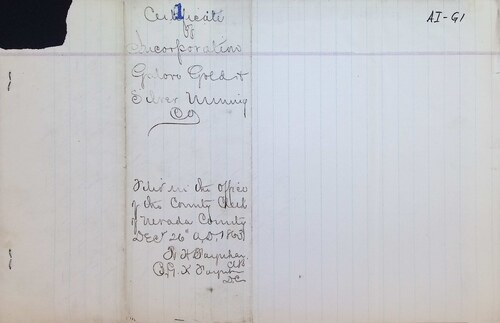 1
AI-G1
Certificate
of
Incorporation
Gold &
Silver Mining
Co
Filed in the office
of the County Clerk
of Nevada County
Dec 26th A.D.
Clk
By